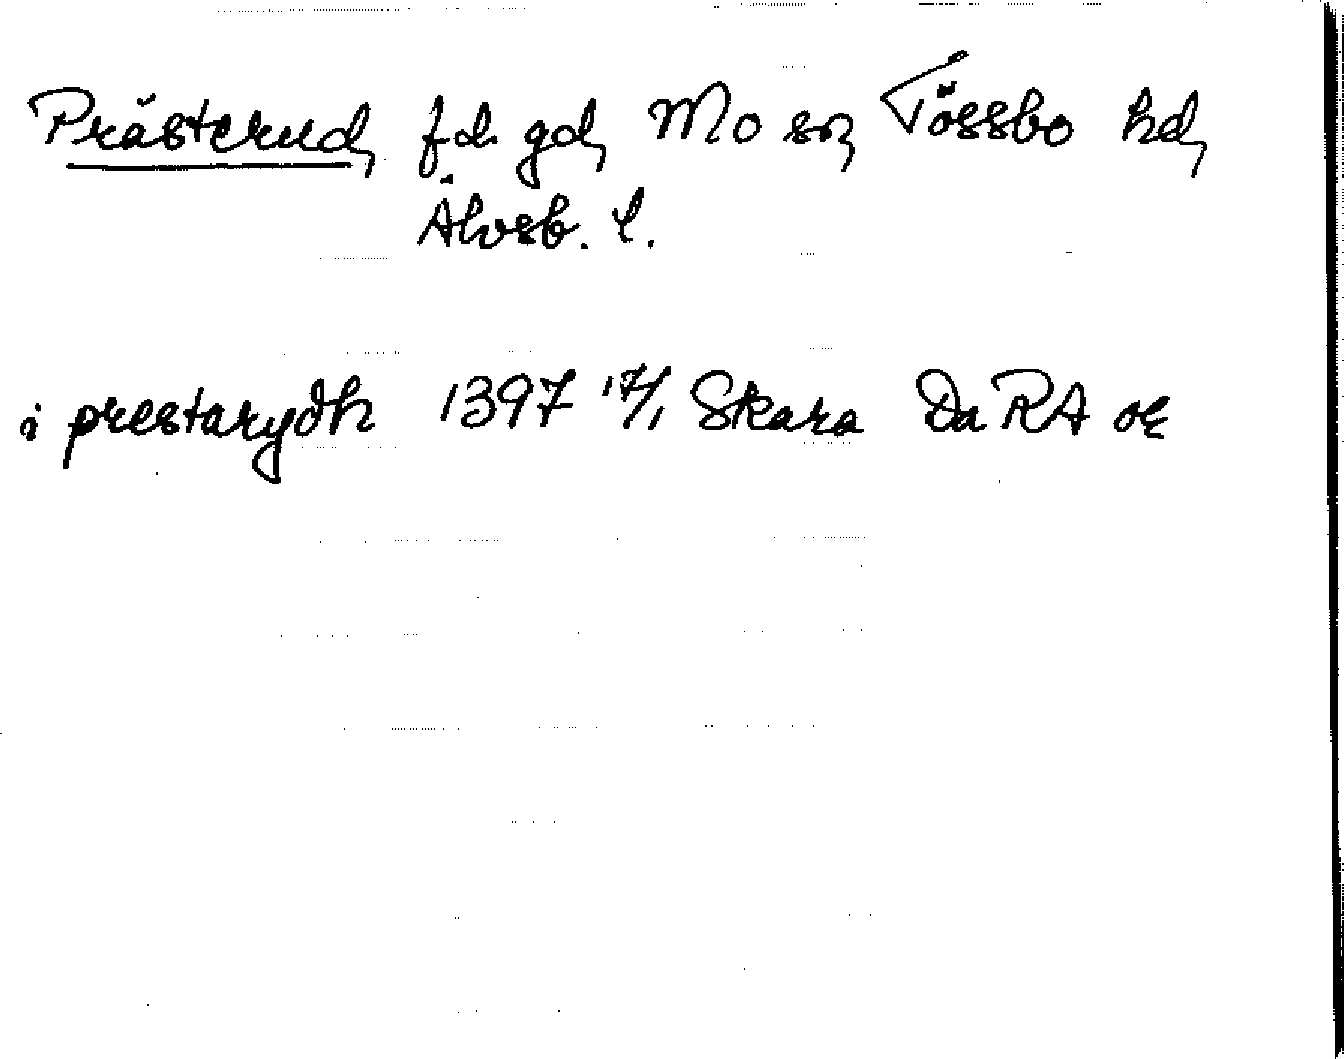 Prästerud, f.d. gd, Mo sn, Tössbo hd,
Älvsb. l.
i prestarydh 1397 17/1 Skara Da RA or